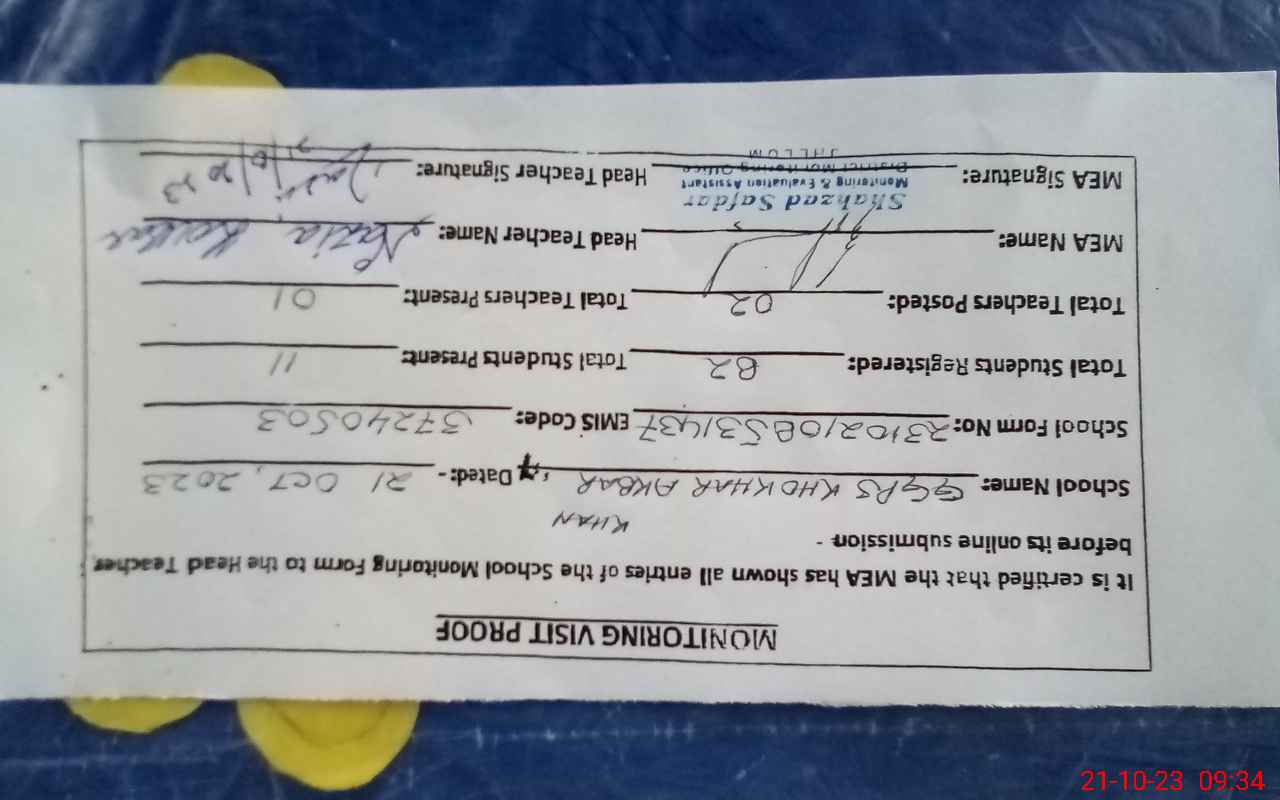 MONITORING VISIT PROOF
It is certified that the MEA has shown all entries of the School Monitoring Form to the Head Teacher
before its online submission -
KHAN
School Name: GGPS KHOKHAR AKBAR Dated:- 21 OCT, 2023
School Form No: 23102108531437 EMIS Code: 37240503
Total Students Registered: 82 Total Students Present: 11
Total Teachers Posted: 02 Total Teachers Present: 01
MEA Name: Head Teacher Name: Nazia Kausar
Shahzad Safdar
Monitoring & Evaluation Assistant
MEA Signature: Head Teacher Signature:
District Monitoring Office
JHELUM
21-10-23 09:34